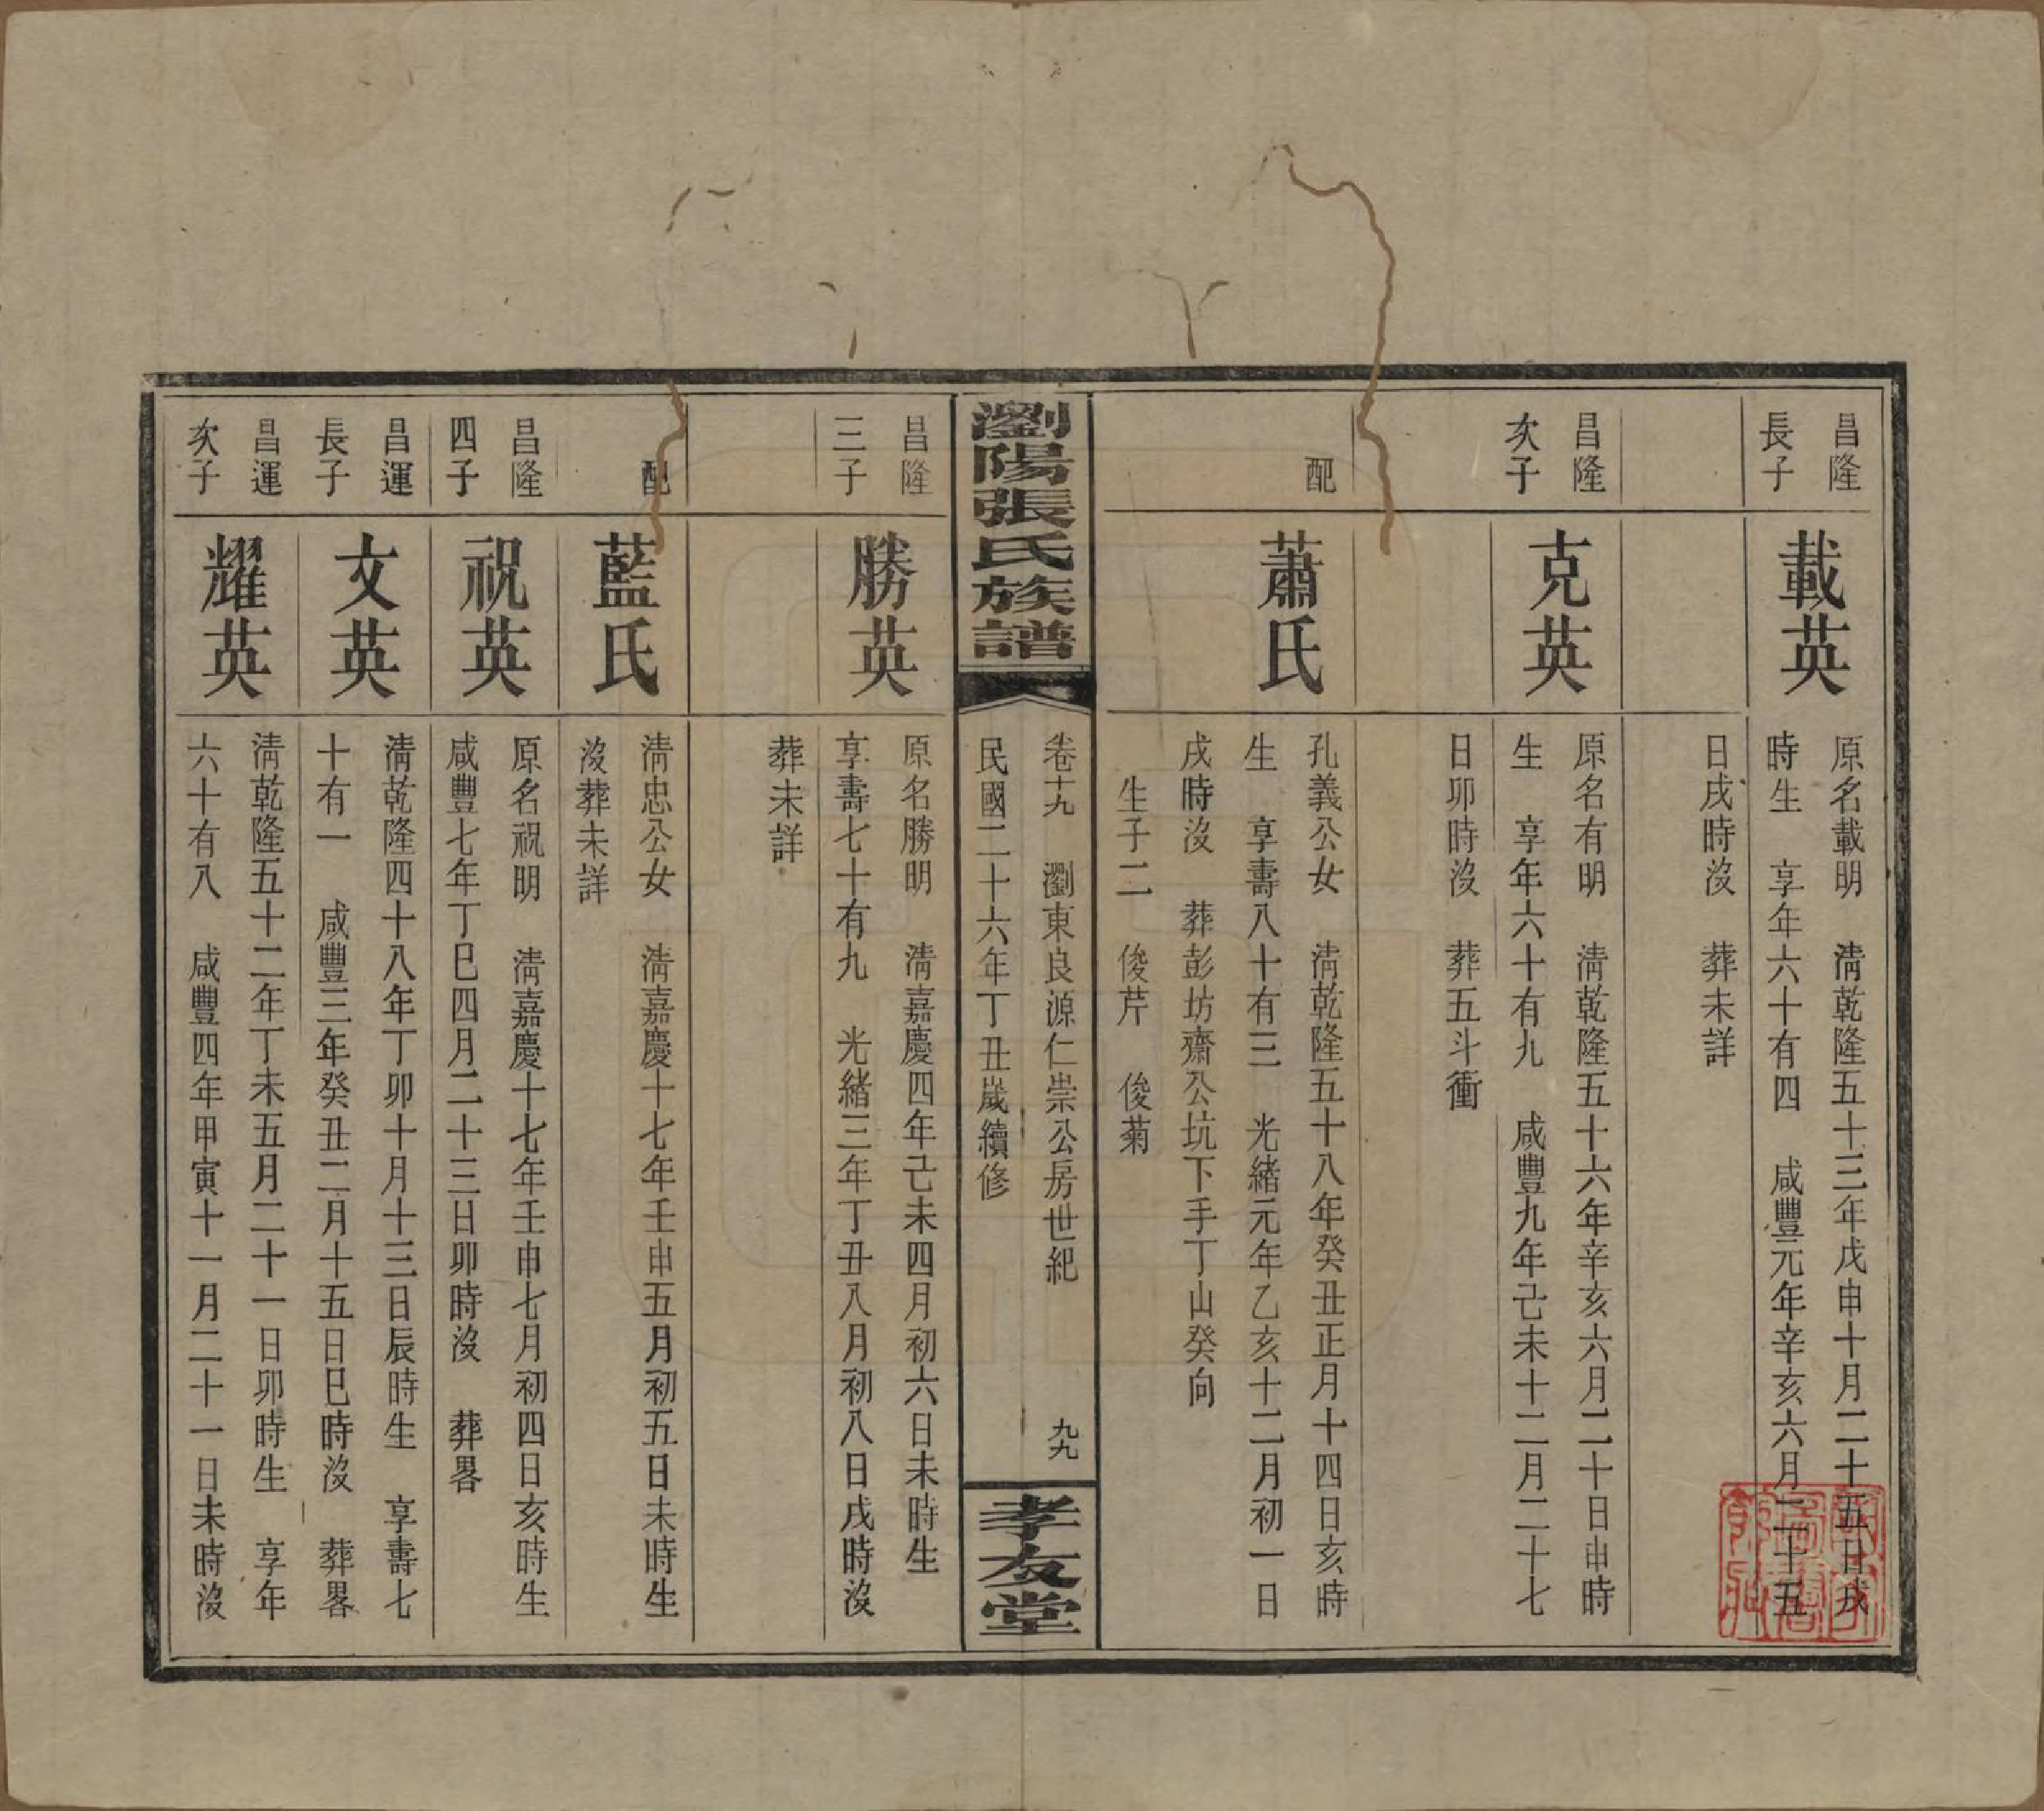 昌隆
長子
載英
原名載明　淸乾隆五十三年戊申十月二十五日戌
時生　享年六十有四　咸豐元年辛亥六月二十五
日戌時沒　葬未詳
昌隆
次子
克英
原名有明　淸乾隆五十六年辛亥六月二十日申時
生　享年六十有九　咸豐九年己未十二月二十七
日卯時沒　葬五斗衝
配
蕭氏
孔義公女　淸乾隆五十八年癸丑正月十四日亥時
生　享壽八十有三　光緒元年乙亥十二月初一日
戌時沒　葬彭坊齋公坑下手丁山癸向
生子二　俊芹　俊菊
瀏陽張氏族譜
卷十九　瀏東良源仁崇公房世紀　九九
民國二十六年丁丑歲續修
孝友堂
昌隆
三子
勝英
原名勝明　淸嘉慶四年己未四月初六日未時生
享壽七十有九　光緒三年丁丑八月初八日戌時沒
葬未詳
配
藍氏
淸忠公女　淸嘉慶十七年壬申五月初五日未時生
沒葬未詳
昌隆
四子
祝英
原名祝明　淸嘉慶十七年壬申七月初四日亥時生
咸豐七年丁巳四月二十三日卯時沒　葬畧
昌運
長子
文英
淸乾隆四十八年丁卯十月十三日辰時生　享壽七
十有一　咸豐三年癸丑二月十五日巳時沒　葬畧
昌運
次子
耀英
淸乾隆五十二年丁未五月二十一日卯時生　享年
六十有八　咸豐四年甲寅十一月二十一日未時沒